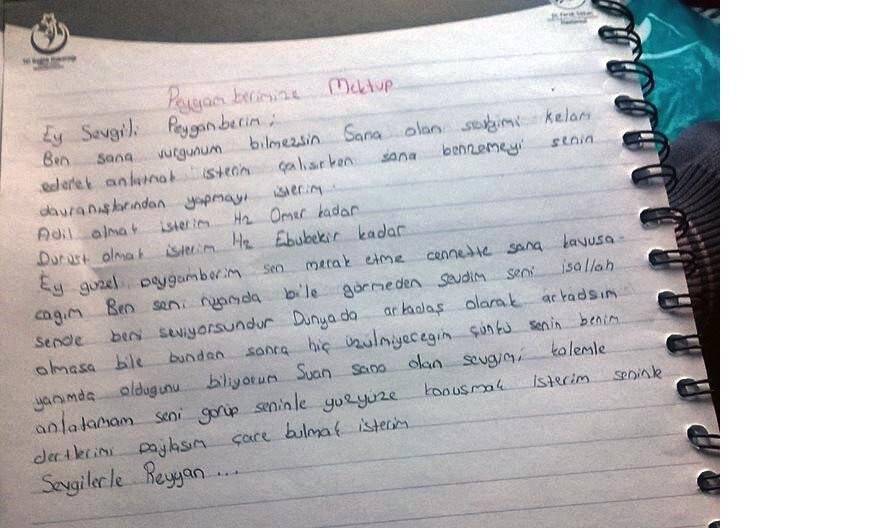 Peygamberimize Mektup
Ey Sevgili Peygamberim;
Ben sana vurgunum bilmezsin Sana olan sevgimi kelam
ederek anlatmak isterim çalısırken sana benzemeyi senin
davranıslarından yapmayı isterim.
Adil olmak isterim Hz Ömer kadar
Durust olmak isterim Hz Ebubekir kadar
Ey guzel peygamberim sen merak etme cennette sana kavusa-
cagım Ben seni ruyamda bile görmeden sevdim seni isallah
sende beni seviyorsundur Dunyada arkadas olarak arkadsım
olmasa bile bundan sonra hiç uzulmiyecegim çunku senin benim
yanımda oldugunu biliyorum Suan sana olan sevgimi kalemle
anlatamam seni gorup seninle yuzyuze konusmak isterim seninle
dertlerimi paylasım çare bulmak isterim
Sevgilerle Reyyan...